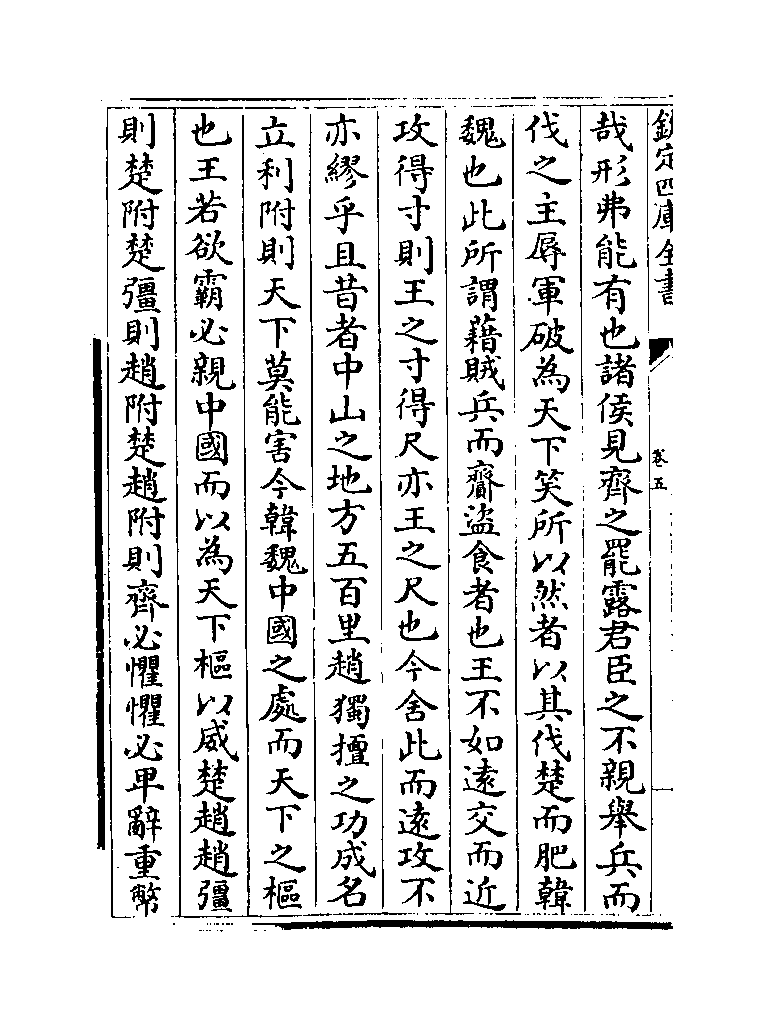 欽定四庫全書
卷五
哉形弗能有也諸侯見齊之罷露君臣之不親舉兵而
伐之主辱軍破為天下笑所以然者以其伐楚而肥韓
魏也此所謂藉賊兵而齎盜食者也王不如逺交而近
攻得寸則王之寸得尺亦王之尺也今舍此而逺攻不
亦繆乎且昔者中山之地方五百里趙獨擅之功成名
立利附則天下莫能害今韓魏中國之處而天下之樞
也王若欲霸必親中國而以為天下樞以威楚趙趙彊
則楚附楚彊則趙附楚趙附則齊必懼懼必卑辭重幣